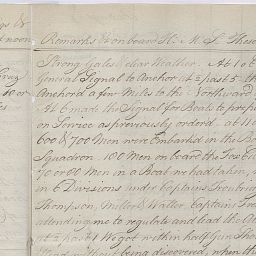 Remarks &c on board H. M. S. Thes
Strong Gales & clear Weather. At 1 o C
General Signal to Anchor at ½ past 5 th
Anchord a few Miles to the Northward
At 6 made the Signal for Boats to prepa
on Service as previously orderd. at 11
600 & 700 Men were Embarked in the Bo
Squadron. 100 Men on board the Sea
70 or 80 Men in a Boat we had taken,
in 6 Divisions under Captains Troubrid
Thompson, Miller & Waller Captains Fre
attending me to regulate and lead the
at ½ past 1 We got within half Gun Shot
Head without being discovered, when the